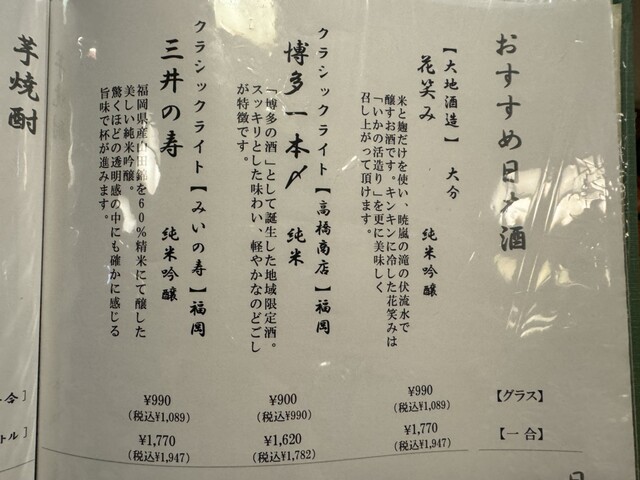 おすすめ日本酒
【グラス】
【一合】
【大地酒造】 大分
花笑み 純米吟醸
米と麹だけを使い、暁嵐の滝の伏流水で
醸すお酒です。キンキンに冷した花笑みは
「いかの活造り」を更に美味しく
召し上がって頂けます。
¥990
(税込¥1,089)
¥1,770
(税込¥1,947)
クラシックライト【高橋商店】福岡
博多一本〆 純米
「博多の酒」として誕生した地域限定酒。
スッキリとした味わい、軽やかなのどごし
が特徴です。
¥900
(税込¥990)
¥1,620
(税込¥1,782)
クラシックライト【みいの寿】福岡
三井の寿 純米吟醸
福岡県産山田錦を60%精米にて醸した
美しい純米吟醸。
驚くほどの透明感の中にも確かに感じる
旨味で杯が進みます。
¥990
(税込¥1,089)
¥1,770
(税込¥1,947)
芋焼酎
合】
トル】